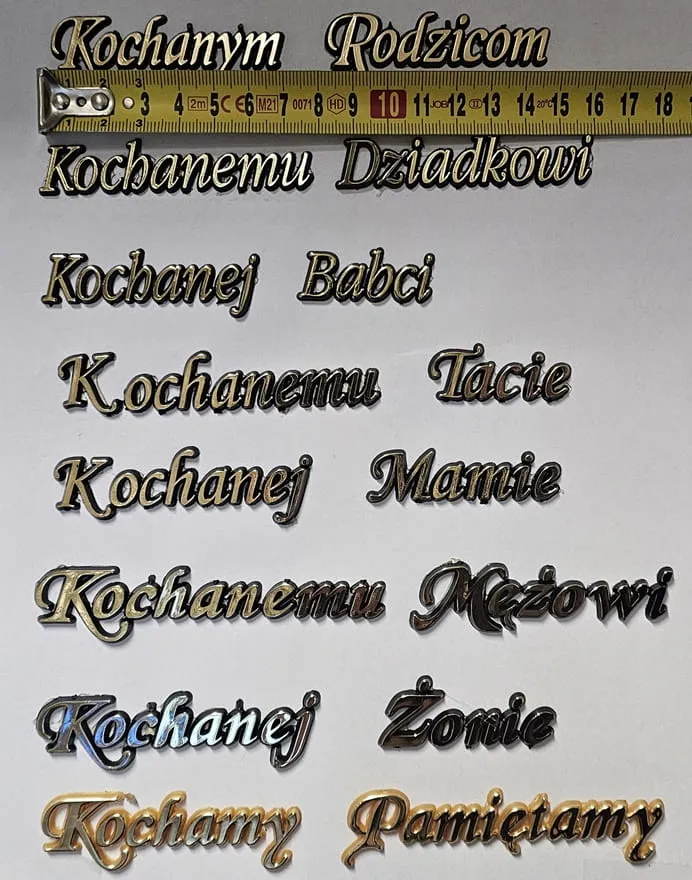 Kochanym Rodzicom
1 2 3
3 4 2m 5 CE 6 M21 7 0071 8 HD 9 10 11 JOB 12 13 14 20°C 15 16 17 18
1 2 3
Kochanemu Dziadkowi
Kochanej Babci
Kochanemu Tacie
Kochanej Mamie
Kochanemu Mężowi
Kochanej Żonie
Kochamy Pamiętamy